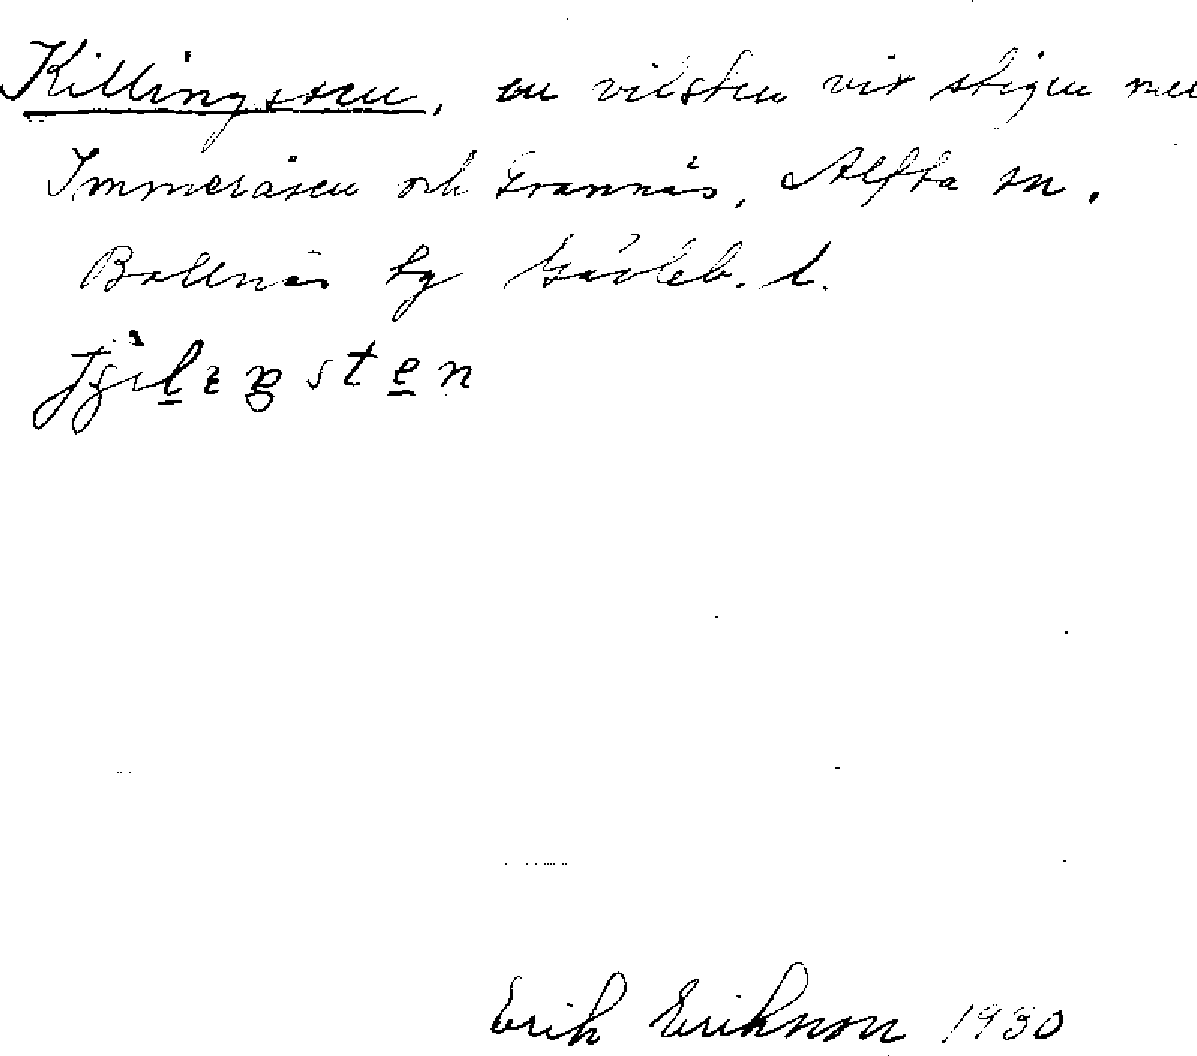 Killingsten, en vilsten vid stigen mel
Immeråsen och Grannäs, Alfta sn.
Bollnäs tg Gävleb. l.
Erik Erikson 1930